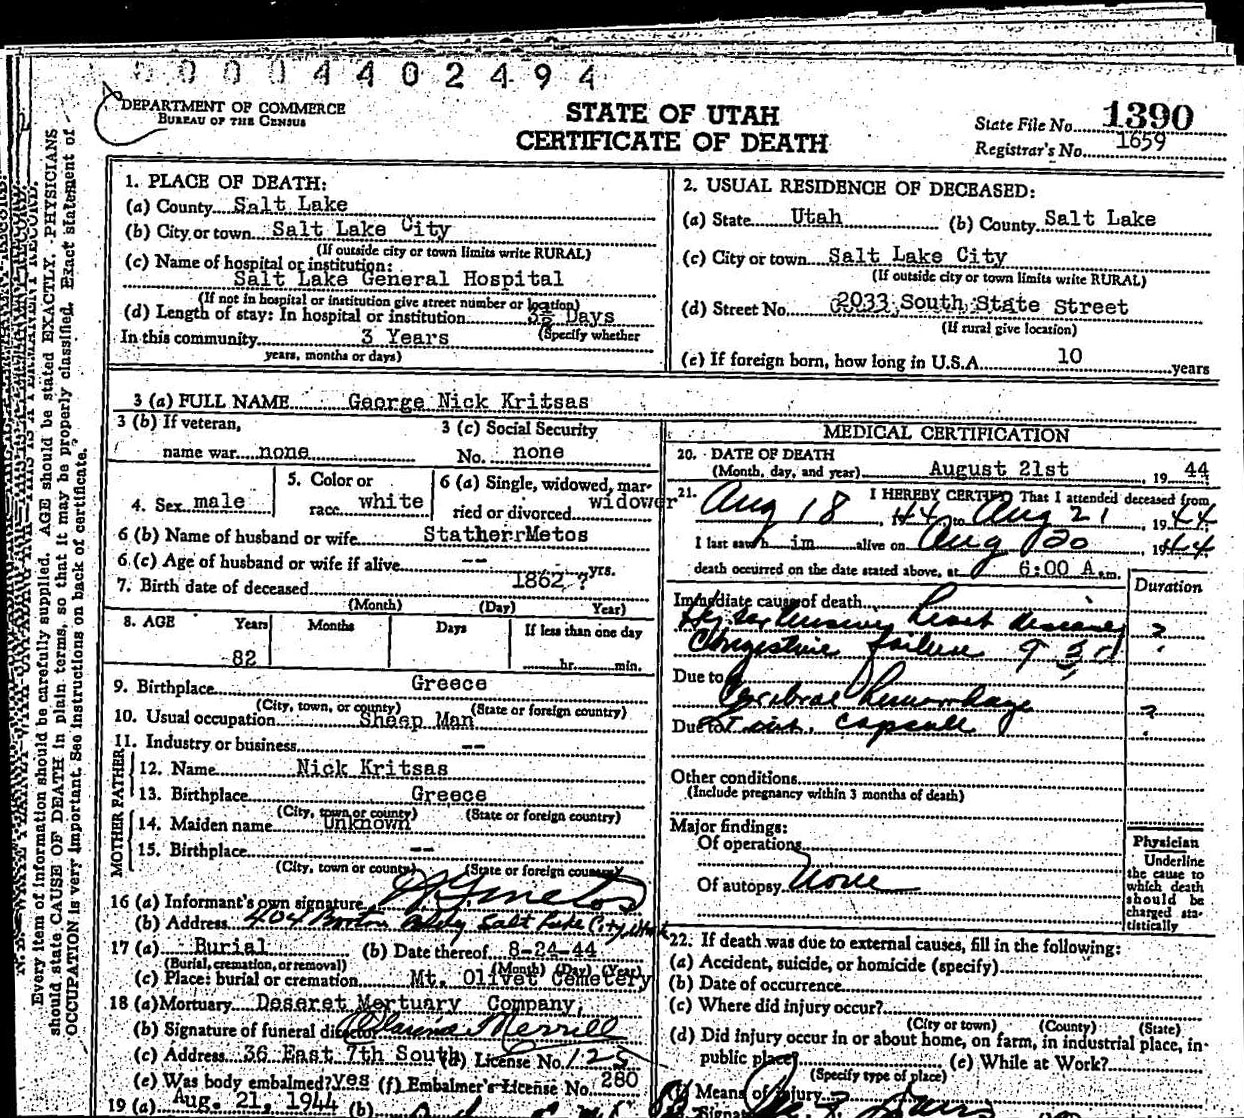 0 0 0 4 4 0 2 4 9 4
DEPARTMENT OF COMMERCE
BUREAU OF THE CENSUS
STATE OF UTAH
CERTIFICATE OF DEATH
State File No. 1390
Registrar's No. 1659
Every item of information should be carefully supplied. AGE should be stated EXACTLY. PHYSICIANS
should state CAUSE OF DEATH in plain terms, so that it may be properly classified. Exact statement of
OCCUPATION is very important. See instructions on back of certificate.
1. PLACE OF DEATH:
(a) County Salt Lake
(b) City or town Salt Lake City
(If outside city or town limits write RURAL)
(c) Name of hospital or institution:
Salt Lake General Hospital
(If not in hospital or institution give street number or location)
(d) Length of stay: In hospital or institution 3½ Days
(Specify whether
In this community 3 Years
years, months or days)
2. USUAL RESIDENCE OF DECEASED:
(a) State Utah (b) County Salt Lake
(c) City or town Salt Lake City
(If outside city or town limits write RURAL)
(d) Street No. 2033 South State Street
(If rural give location)
(e) If foreign born, how long in U.S.A. 10 years
3 (a) FULL NAME George Nick Kritsas
3 (b) If veteran,
name war none
3 (c) Social Security
No. none
4. Sex male
5. Color or
race white
6 (a) Single, widowed, mar-
ried or divorced widower
6 (b) Name of husband or wife StatherrMetos
6 (c) Age of husband or wife if alive -- yrs.
7. Birth date of deceased 1862 ?
(Month) (Day) Year)
8. AGE Years Months Days If less than one day
82 hr. min.
9. Birthplace Greece
(City, town, or county) (State or foreign country)
10. Usual occupation Sheep Man
11. Industry or business --
FATHER
12. Name Nick Kritsas
13. Birthplace Greece
(City, town or county) (State or foreign country)
MOTHER
14. Maiden name Unknown
15. Birthplace --
(City, town or county) (State or foreign country)
16 (a) Informant's own signature
(b) Address 404 Bldg Salt Lake City, Utah
17 (a) Burial (b) Date thereof 8-24-44
(Burial, cremation, or removal) (Month) (Day) (Year)
(c) Place: burial or cremation Mt. Olivet Cemetery
18 (a) Mortuary Deseret Mortuary Company,
(b) Signature of funeral director Merrill
(c) Address 36 East 7th South (d) License No. 125
(e) Was body embalmed? yes (f) Embalmer's License No. 280
19 (a) Aug. 21, 1944 (b)
MEDICAL CERTIFICATION
20. DATE OF DEATH
(Month, day, and year) August 21st 19 44
21. I HEREBY CERTIFY That I attended deceased from
Aug 18, 44 to Aug 21, 1944
I last saw h im alive on Aug 20, 1944
death occurred on the date stated above, at 6:00 A. m.
Duration
Immediate cause of death
Hypertensive heart disease ?
Congestive failure
Due to
Cerebral hemorrhage ?
Due to int. capsule
Other conditions
(Include pregnancy within 3 months of death)
Major findings:
Of operations
Of autopsy None
Physician
Underline
the cause to
which death
should be
charged sta-
tistically
22. If death was due to external causes, fill in the following:
(a) Accident, suicide, or homicide (specify)
(b) Date of occurrence
(c) Where did injury occur?
(City or town) (County) (State)
(d) Did injury occur in or about home, on farm, in industrial place, in
public place? (e) While at Work?
(Specify type of place)
(f) Means of injury